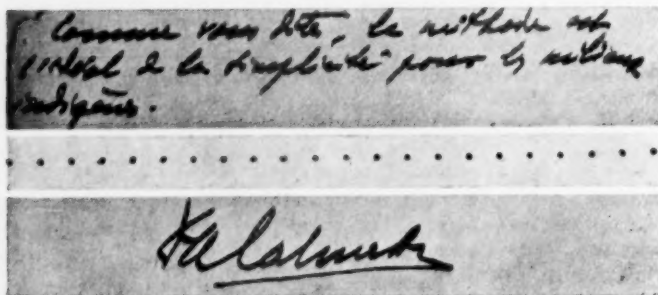 Comme vous dite, la méthode est
l'idéal de la simplicité pour les milieux
indigènes.